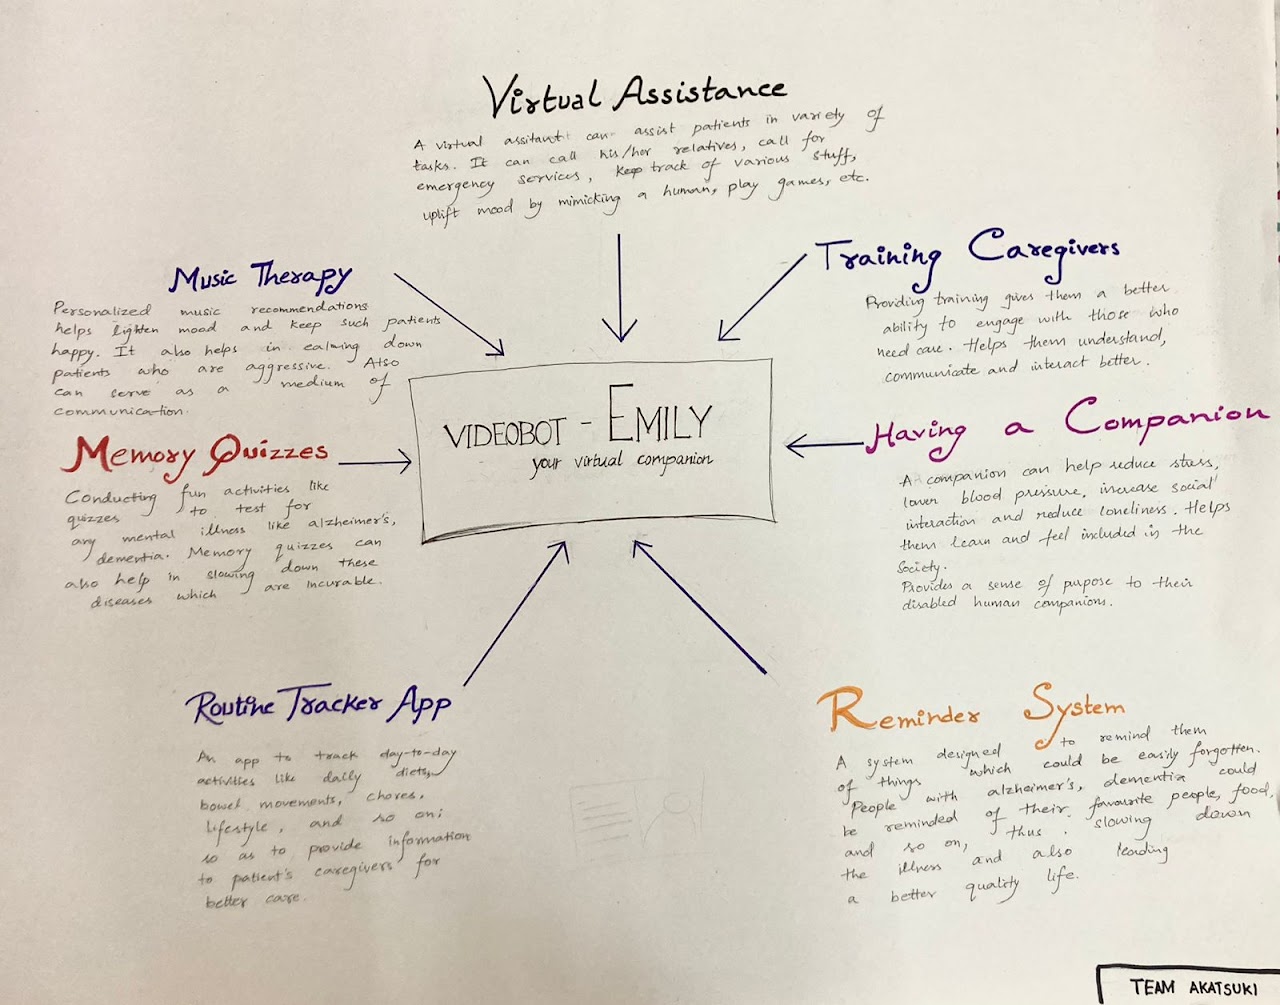 Virtual Assistance
A virtual assitant can assist patients in variety of
tasks. It can call his/her relatives, call for
emergency services, keep track of various stuff,
uplift mood by mimicking a human, play games, etc.
Music Therapy
Personalized music recommendations
helps lighten mood and keep such patients
happy. It also helps in calming down
patients who are aggressive. Also
can serve as a medium of
communication.
Training Caregivers
Providing training gives them a better
ability to engage with those who
need care. Helps them understand,
communicate and interact better.
VIDEOBOT - EMILY
your virtual companion
Memory Quizzes
Conducting fun activities like
quizzes to test for
any mental illness like alzheimer's,
dementia. Memory quizzes can
also help in slowing down these
diseases which are incurable.
Having a Companion
A companion can help reduce stress,
lower blood pressure, increase social
interaction and reduce loneliness. Helps
them learn and feel included in the
society.
Provides a sense of purpose to their
disabled human companions.
Routine Tracker App
An app to track day-to-day
activities like daily diets,
bowel movements, chores,
lifestyle, and so on;
so as to provide information
to patient's caregivers for
better care.
Reminder System
A system designed to remind them
of things which could be easily forgotten.
People with alzheimer's, dementia could
be reminded of their favourite people, food,
and so on, thus slowing down
the illness and also leading
a better quality life.
TEAM AKATSUKI